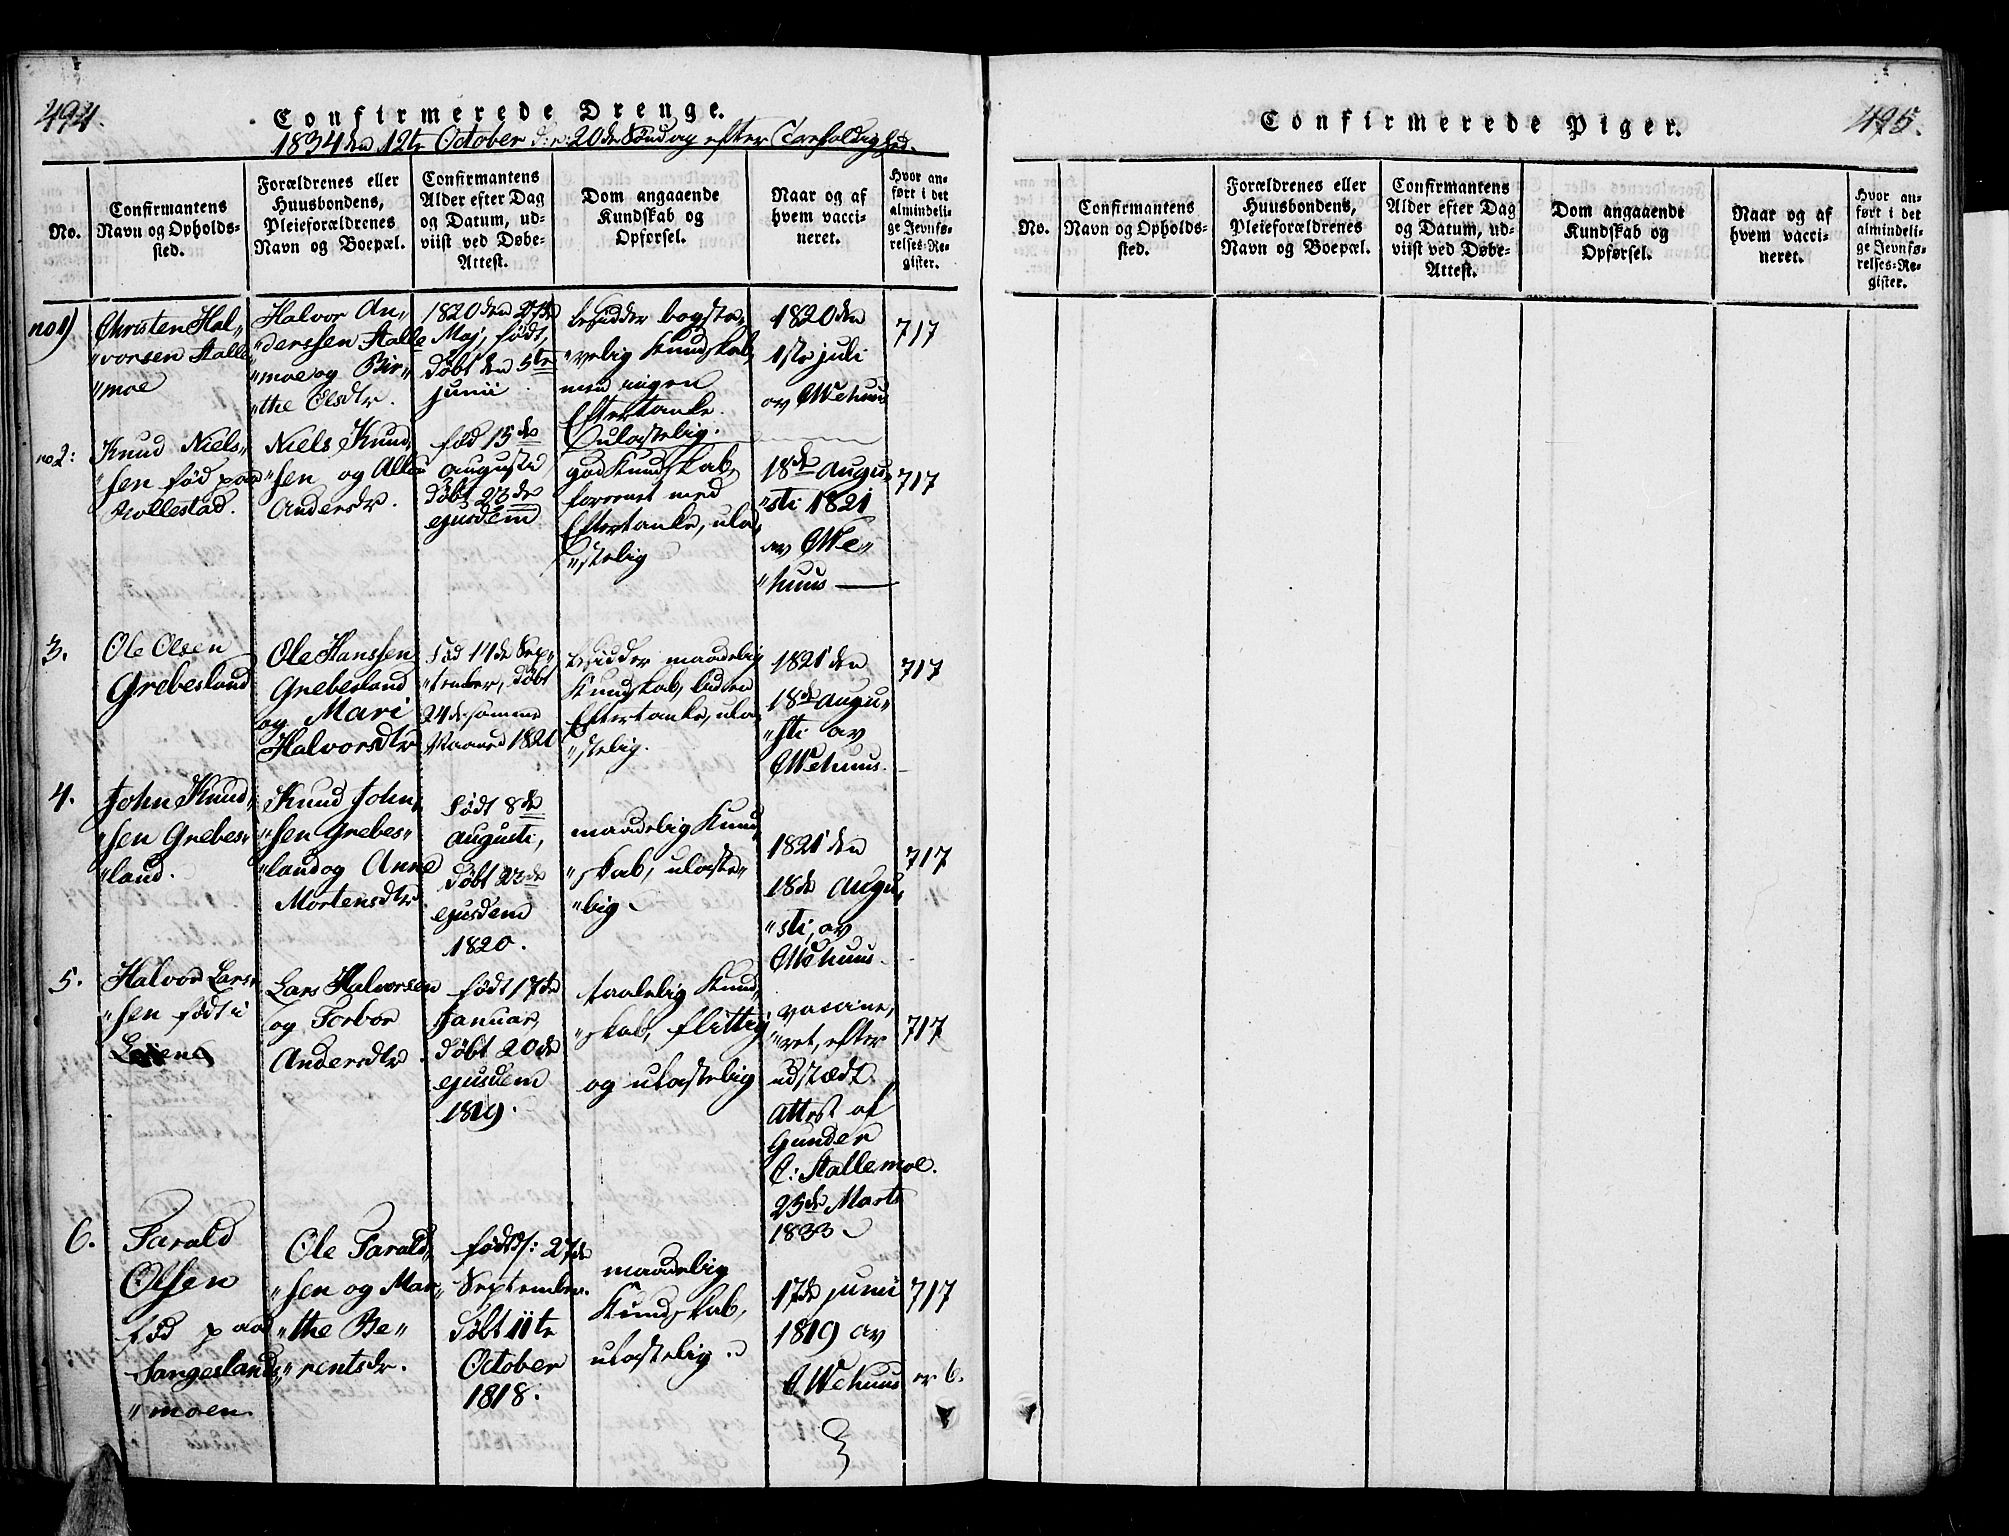 494.
Confirmerede Drenge.
1834 den 12te October d: e: 20de Söndag efter Trefoldighed.
No.
Confirmantens
Navn og Opholds-
sted.
Forældrenes eller
Huusbondens,
Pleieforældrenes
Navn og Boepæl.
Confirmantens
Alder efter Dag
og Datum, ud-
viist ved Døbe-
Attest.
Dom angaaende
Kundskab og
Opførsel.
Naar og af
hvem vacci-
neret.
Hvor an-
ført i det
almindeli-
ge Jevnfø-
relses-Re-
gister.
no 1)
Christen Hal„
„vorsen Stalle„
„moe
Halvor An„
„derssen Stalle
„moe og Bir„
„the Olsdtr.
1820 den 27de
Maj, født,
døbt den 5te
junii
besidder bogsta„
„velig Kundskab,
men ingen
Eftertanke.
Oulastelig.
1820 den
1ste juli
av OWehuus
717
no 2:
Knud Niels„
„sen fød paa
Hollestad.
Niels Knud„
„sen og
Andersdr.
fød 15de
augusti,
døbt 23de
ejusdem
god Kundskab,
forenet med
Eftertanke, ula„
„stelig
18de Augu„
„sti 1821
av OWe„
„huus
717
3.
Ole Olsen
Grebesland
Ole Hanssen
Grebesland
og Mari
Halvorsdtr
Fød 14de Sep„
„tember, døbt
24de samme
Maaned 1820
besidder maadelig
Kundskab, liden
Eftertanke, ula„
„stelig.
1821 den
18de augu„
„sti av
OWehuus.
717
4.
John Knud„
„sen Grebes„
„land.
Knud John„
„sen Grebes„
„land og Anne
Mortensdtr
Født 8de
augusti,
døbt 23de
ejusdem
1820.
maadelig Kund„
„skab, ulaste„
„lig
1821 den
18de Augu„
„sti, av
OWehuus.
717
5.
Halvor Lars„
„sen født i
Lars Halvorsen
og Torbor
Andersdtr.
født 17de
Januar,
døbt 20de
ejusdem
1819.
taalelig Kund„
„skab, flittig
og ulastelig
vaccine„
„ret, efter
udstædt
Attest af
Gunder
C: Stallemoe.
25de Marts
1833
717
6.
Tarald
Olsen
fød paa
Sangeslands„
„moen.
Ole Tarald„
„sen og Mar„
„the Be„
„rentsdr.
født d: 27de
September.
døbt 11te
October
1818.
maadelig
Kundskab,
ulastelig.
17de junii
1819 av
OWehuus
717
nr 6.
495.
Confirmerede Piger.
No.
Confirmantens
Navn og Opholds-
sted.
Forældrenes eller
Huusbondens,
Pleieforældrenes
Navn og Boepæl.
Confirmantens
Alder efter Dag
og Datum, ud-
viist ved Døbe-
Attest.
Dom angaaende
Kundskab og
Opførsel.
Naar og af
hvem vacci-
neret.
Hvor an-
ført i det
almindeli-
ge Jevnfø-
relses-Re-
gister.